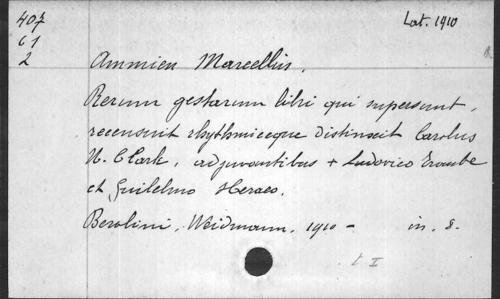 407
61
2
Lat. 1910
Ammien Marcellin.
Rerum gestarum libri qui supersunt,
recensuit rhythmiceque distinxit Carolus
U. Clark, adjuvantibus + Ludovico Traube
et Guilelmo Heraeo.
Berolini, Weidmann, 1910 - in. 8.
t I